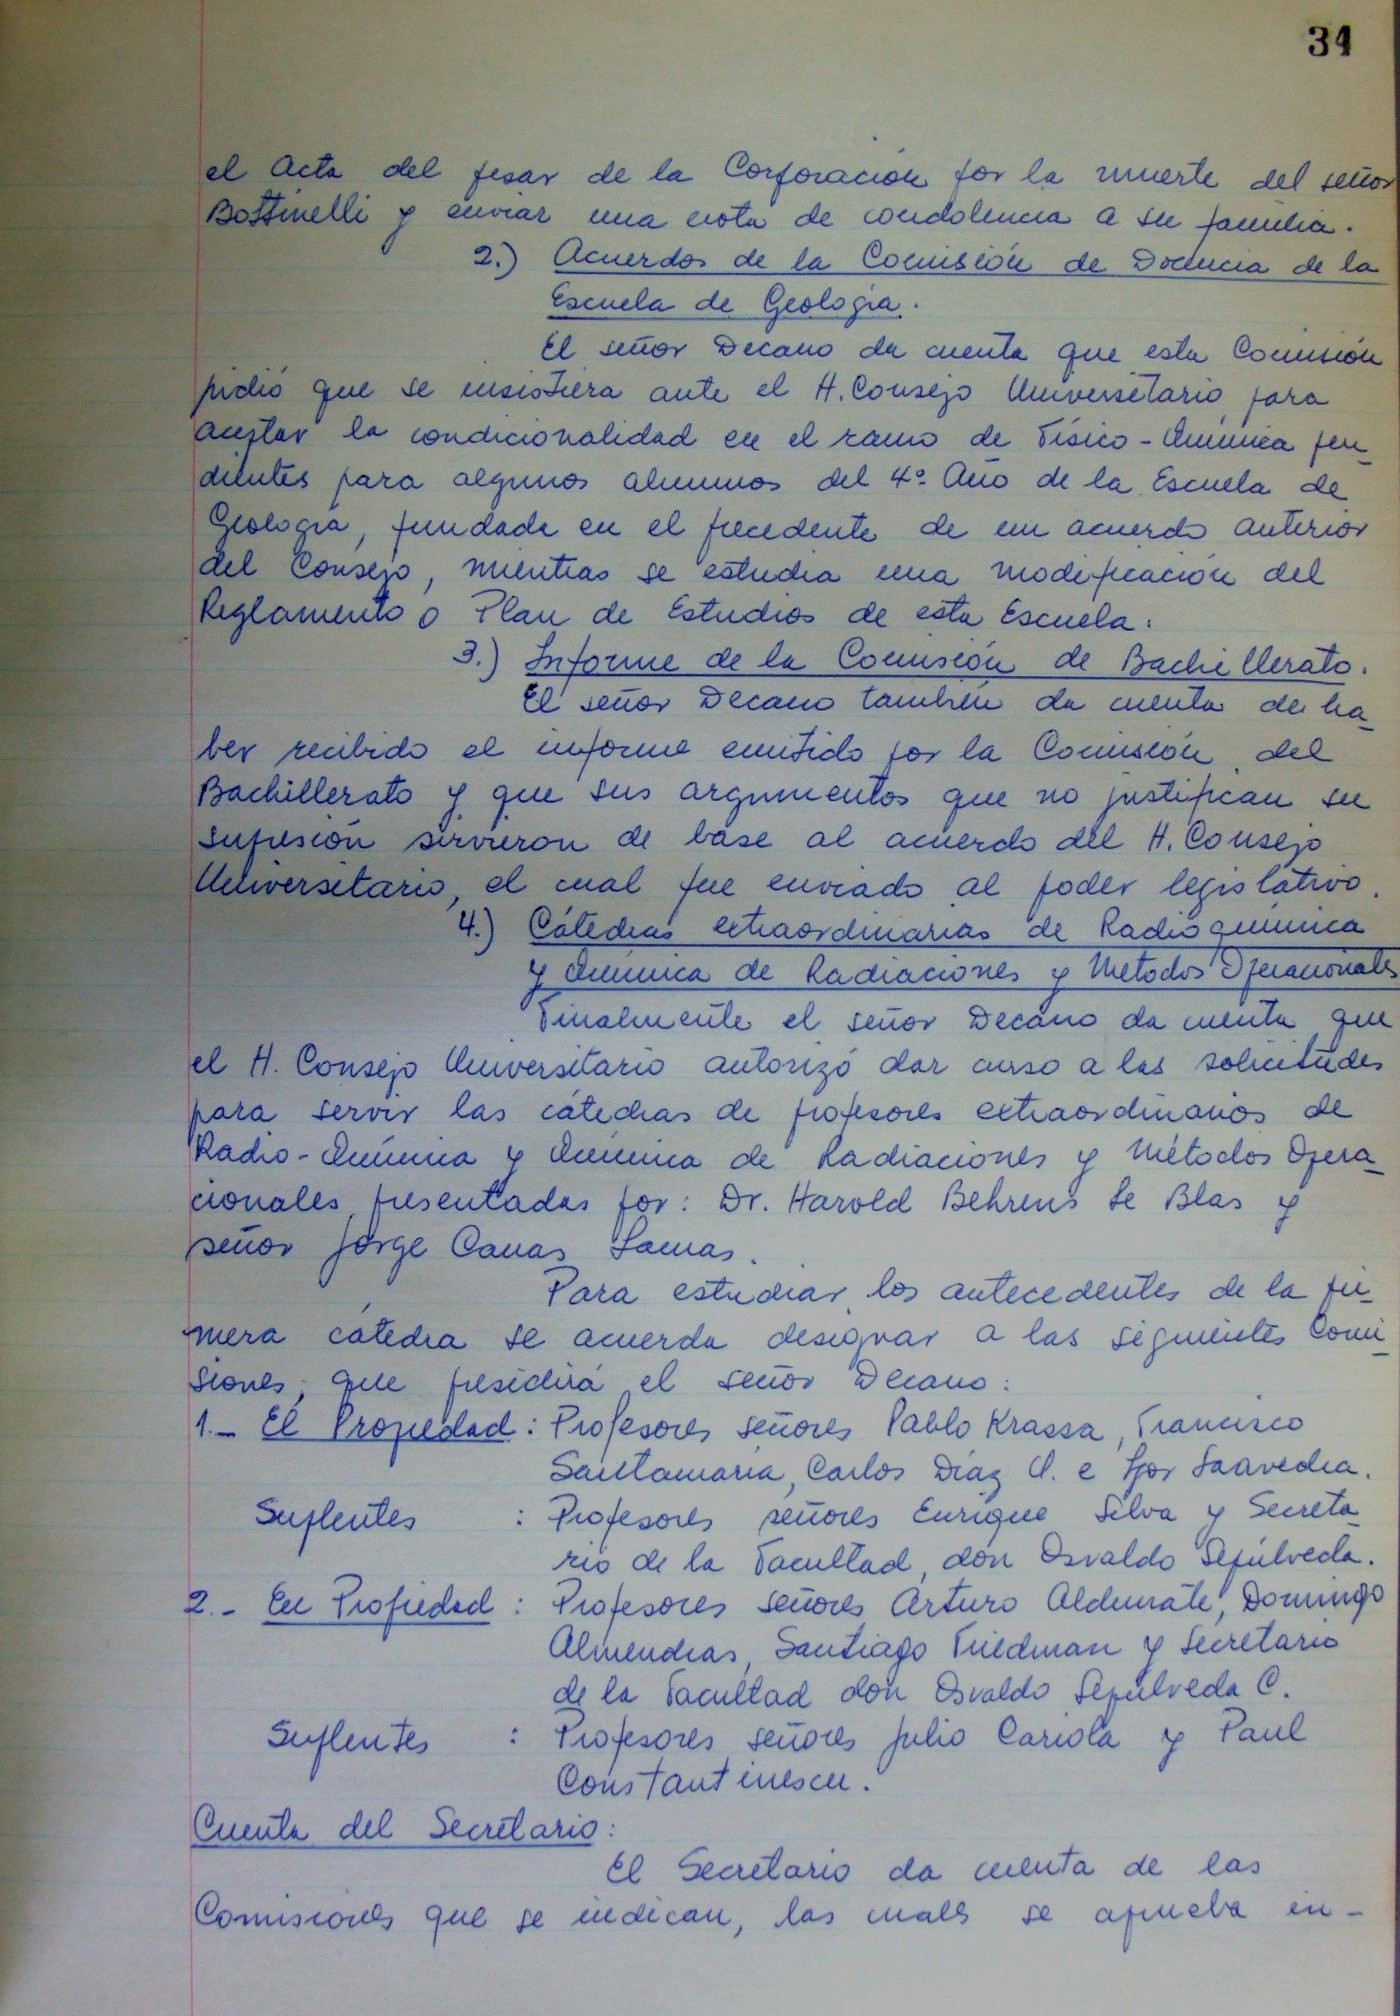 31
el Acta del pesar de la Corporación por la muerte del señor
Bottinelli y enviar una nota de condolencia a su familia.
2.) Acuerdos de la Comisión de Docencia de la
Escuela de Geología.
El señor Decano da cuenta que esta Comisión
pidió que se insistiera ante el H. Consejo Universitario para
aceptar la condicionalidad en el ramo de Físico-Química pen-
dientes para algunos alumnos del 4º Año de la Escuela de
Geología, fundada en el precedente de un acuerdo anterior
del Consejo, mientras se estudia una modificación del
Reglamento o Plan de Estudios de esta Escuela.
3.) Informe de la Comisión de Bachillerato.
El señor Decano también da cuenta de ha-
ber recibido el informe emitido por la Comisión del
Bachillerato y que sus argumentos que no justifican su
supresión sirvieron de base al acuerdo del H. Consejo
Universitario, el cual fue enviado al poder legislativo.
4.) Cátedras extraordinarias de Radioquímica
y Química de Radiaciones y Métodos Operacionales
Finalmente el señor Decano da cuenta que
el H. Consejo Universitario autorizó dar curso a las solicitudes
para servir las cátedras de profesores extraordinarios de
Radio-Química y Química de Radiaciones y Métodos Opera-
cionales presentadas por: Dr. Harold Behrens Le Blas y
señor Jorge Canas Lamas.
Para estudiar los antecedentes de la pri-
mera cátedra se acuerda designar a las siguientes Comi-
siones, que presidirá el señor Decano:
1.- El Propiedad: Profesores señores Pablo Krassa, Francisco
Santamaría, Carlos Díaz U. e Igor Saavedra.
Suplentes : Profesores señores Enrique Silva y Secreta-
rio de la Facultad, don Osvaldo Sepúlveda.
2.- En Propiedad : Profesores señores Arturo Aldunate, Domingo
Almendras, Santiago Friedman y Secretario
de la Facultad don Osvaldo Sepúlveda C.
Suplentes : Profesores señores Julio Cariola y Paul
Constantinescu.
Cuenta del Secretario:
El Secretario da cuenta de las
Comisiones que se indican, las cuales se aprueba in-